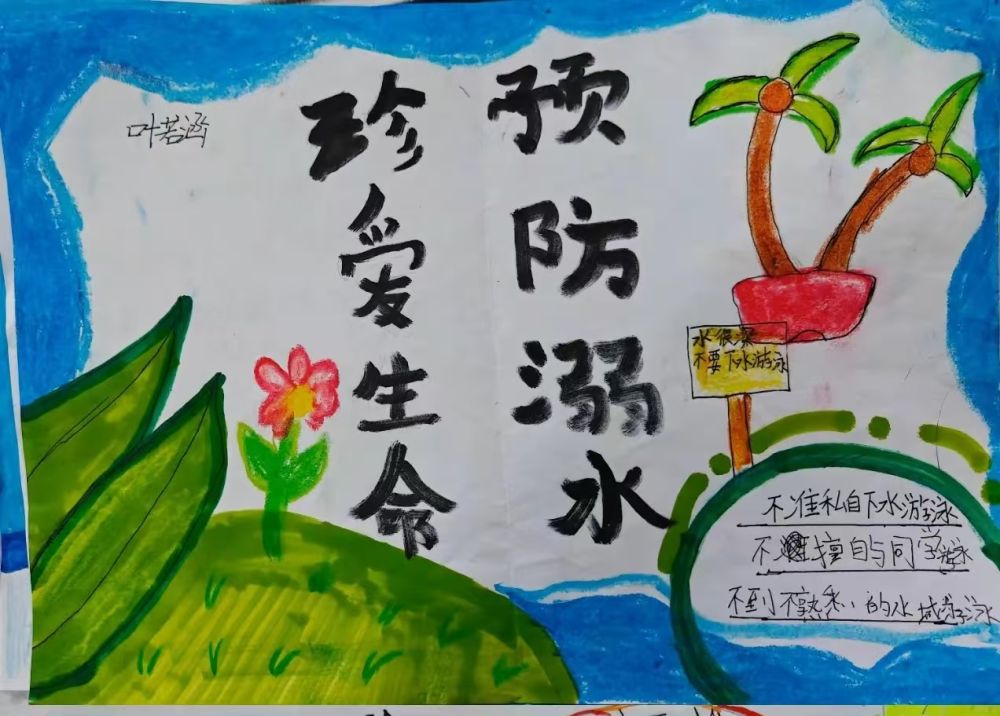 叶若涵
预防溺水
珍爱生命
水很深
不要下水游泳
不准私自下水游泳
不擅自与同学游泳
不到不熟悉的水域游泳